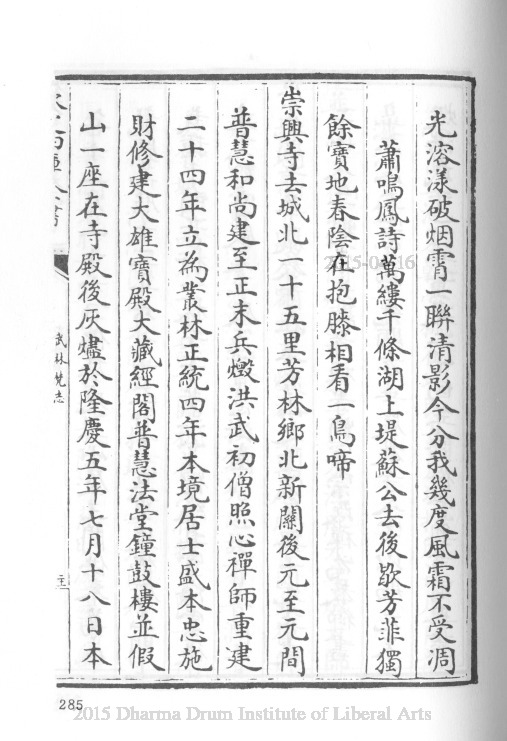 光溶漾破烟霄一聯清影今分我幾度風霜不受凋
蕭鳴鳳詩萬縷千條湖上堤蘇公去後歇芳菲獨
餘寶地春陰在抱膝相看一鳥啼
崇興寺去城北一十五里芳林鄉北新關後元至元間
普慧和尚建至正末兵燬洪武初僧照心禪師重建
二十四年立為叢林正統四年本境居士盛本忠施
財修建大雄寶殿大藏經閣普慧法堂鐘鼓樓並假
山一座在寺殿後灰燼於隆慶五年七月十八日本
武林梵志
285
2015 Dharma Drum Institute of Liberal Arts